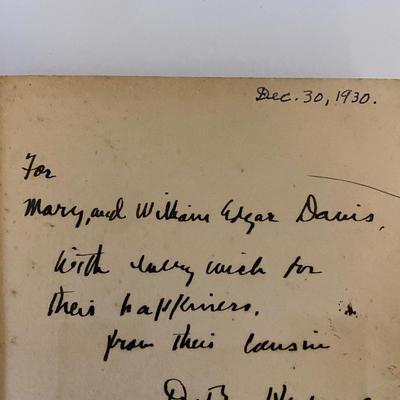 Dec. 30, 1930.
For
Mary, and William Edgar Davis,
With every wish for
their happiness.
from their cousin